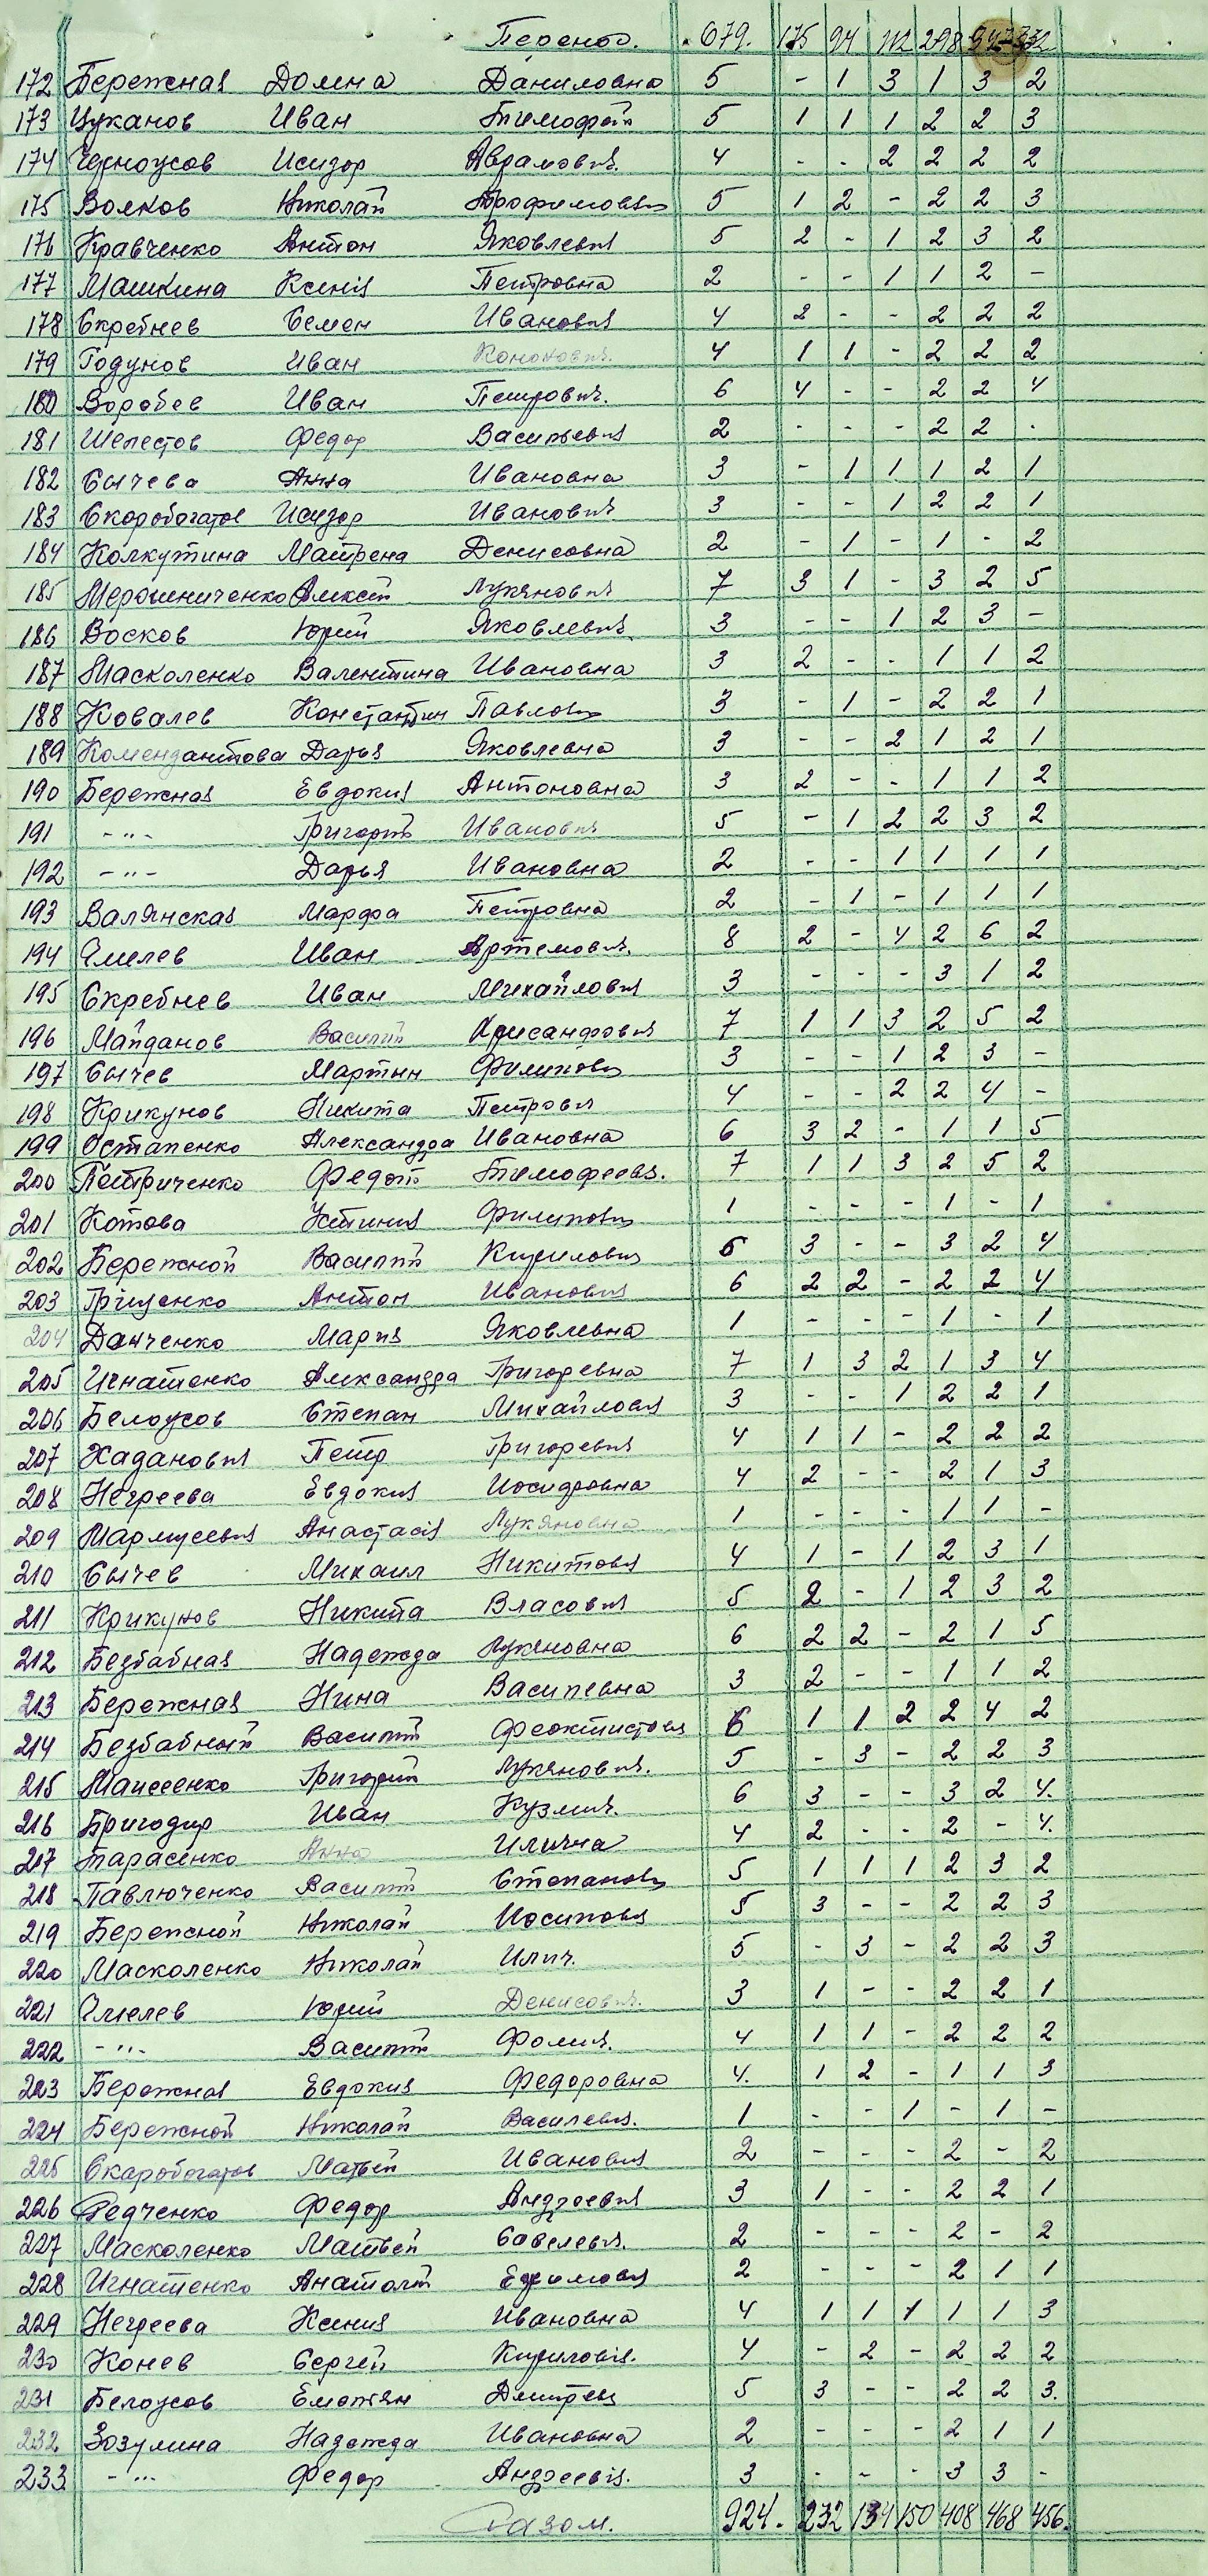 Перенос. 679. 175 94 112 298 347 332
172 Бережная Домна Даниловна 5 - 1 3 1 3 2
173 Цуканов Иван Тимофей 5 1 1 1 2 2 3
174 Черноусов Исидор Аврамович. 4 - - 2 2 2 2
175 Волков Николай Трофимович 5 1 2 - 2 2 3
176 Кравченко Антон Яковлевич 5 2 - 1 2 3 2
177 Машкина Ксенія Петровна 2 - - 1 1 2 -
178 Скребнев Семен Иванович 4 2 - - 2 2 2
179 Годунов Иван Кононович. 4 1 1 - 2 2 2
180 Воробев Иван Петрович. 6 4 - - 2 2 4
181 Шелестов Федор Васильевич 2 - - - 2 2 -
182 Сычева Анна Ивановна 3 - 1 1 1 2 1
183 Скоробогатов Исидор Иванович 3 - - 1 2 2 1
184 Колкутина Матрена Денисовна 2 - 1 - 1 - 2
185 Мерошниченко Алексей Лукянович 7 3 1 - 3 2 5
186 Восков Юрий Яковлевич 3 - - 1 2 3 -
187 Масколенко Валентина Ивановна 3 2 - - 1 1 2
188 Ковалев Константин Павлович 3 - 1 - 2 2 1
189 Комендантова Дарья Яковлевна 3 - - 2 1 2 1
190 Бережная Евдокия Антоновна 3 2 - - 1 1 2
191 - " - Григорий Иванович 5 - 1 2 2 3 2
192 - " - Дарья Ивановна 2 - - 1 1 1 1
193 Валянская Марфа Петровна 2 - 1 - 1 1 1
194 Ямелев Иван Артемович. 8 2 - 4 2 6 2
195 Скребнев Иван Михайлович 3 - - - 3 1 2
196 Майданов Василий 7 1 1 3 2 5 2
197 Сычев Мартын Филипович 3 - - 1 2 3 -
198 Крикунов Никита Петрович 4 - - 2 2 4 -
199 Остапенко Александра Ивановна 6 3 2 - 1 1 5
200 Петриченко Федот Тимофеевич. 7 1 1 3 2 5 2
201 Котова Устиния Филипович 1 - - - 1 - 1
202 Бережной Василий Кирилович 6 3 - - 3 2 4
203 Гриценко Антон Иванович 6 2 2 - 2 2 4
204 Данченко Мария Яковлевна 1 - - - 1 - 1
205 Игнатенко Александра Григоревна 7 1 3 2 1 3 4
206 Белоусов Степан Михайлович 3 - - 1 2 2 1
207 Хаданович Петр Григоревич 4 1 1 - 2 2 2
208 Негреева Евдокия Иосифовна 4 2 - - 2 1 3
209 Мармусевич Анастасія Лукяновна 1 - - - 1 1 -
210 Сычев Михаил Никитович 4 1 - 1 2 3 1
211 Крикунов Никита Власович 5 2 - 1 2 3 2
212 Безбабная Надежда Лукяновна 6 2 2 - 2 1 5
213 Бережная Нина Василевна 3 2 - - 1 1 2
214 Безбабный Василий Феоктистович 6 1 1 2 2 4 2
215 Маисеенко Григорий Лукянович. 5 - 3 - 2 2 3
216 Бригодир Иван Кузмич. 6 3 - - 3 2 4.
217 Тарасенко Анна Илична 4 2 - - 2 - 4.
218 Павлюченко Василий Степанович 5 1 1 1 2 3 2
219 Бережной Николай Иосипович 5 3 - - 2 2 3
220 Масколенко Николай Илич. 5 - 3 - 2 2 3
221 Ямелев Юрий Денисович. 3 1 - - 2 2 1
222 - " - Василий Фомич. 4 1 1 - 2 2 2
223 Бережная Евдокия Федоровна 4. 1 2 - 1 1 3
224 Бережной Николай Василевич. 1 - - 1 - 1 -
225 Скаробогатов Матвей Иванович 2 - - - 2 - 2
226 Редченко Федор Андреевич 3 1 - - 2 2 1
227 Масколенко Матвей Савелевич. 2 - - - 2 - 2
228 Игнатенко Анатолій Ефимович 2 - - - 2 1 1
229 Негреева Ксения Ивановна 4 1 1 1 1 1 3
230 Конев Сергей Кирилович. 4 - 2 - 2 2 2
231 Белоусов Емельян Дмитрев 5 3 - - 2 2 3.
232 Зозулина Надежда Ивановна 2 - - - 2 1 1
233 - " - Федор Андреевіч. 3 - - - 3 3 -
Разом. 924. 232 134 150 408 468 456.